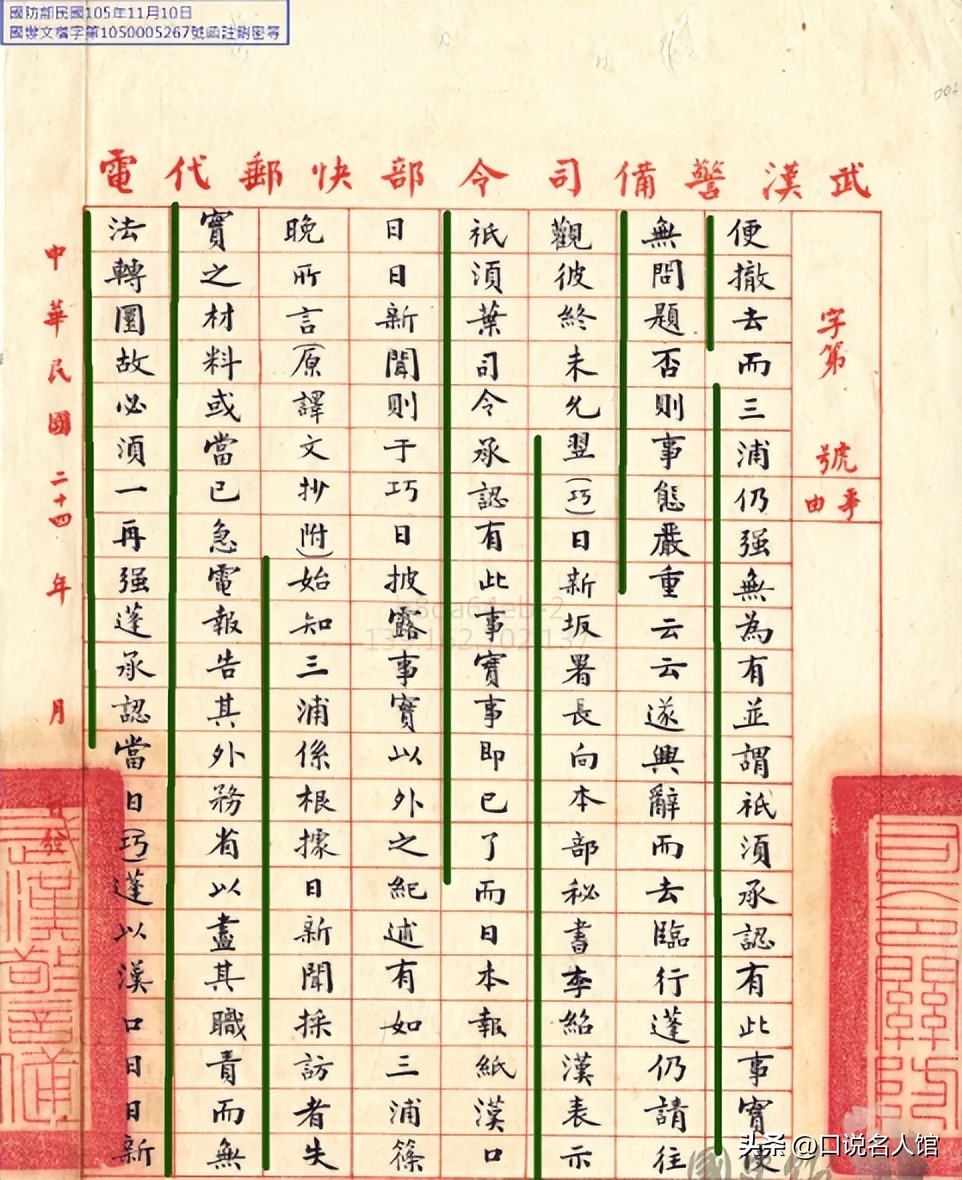 國防部民國105年11月10日
國世文檔字第1050005267號函註銷密等
武漢警備司令部快郵代電
字第 號
事由
便撤去而三浦仍强無為有並謂祇須承認有此事實便
無問題否則事態嚴重云云遂興辭而去臨行蓬仍請往
觀彼終未允翌(巧)日新坂署長向本部秘書李紹漢表示
祇須葉司令承認有此事實事即已了而日本報紙漢口
日日新聞則于巧日披露事實以外之紀述有如三浦篠
晚所言(原譯文抄附)始知三浦係根據日新聞採訪者失
實之材料或當已急電報告其外務省以盡其職責而無
法轉圜故必須一再强蓬承認當日(巧)蓬以漢口日日新
中華民國二十四年 月 日發
頭条 @口说名人馆